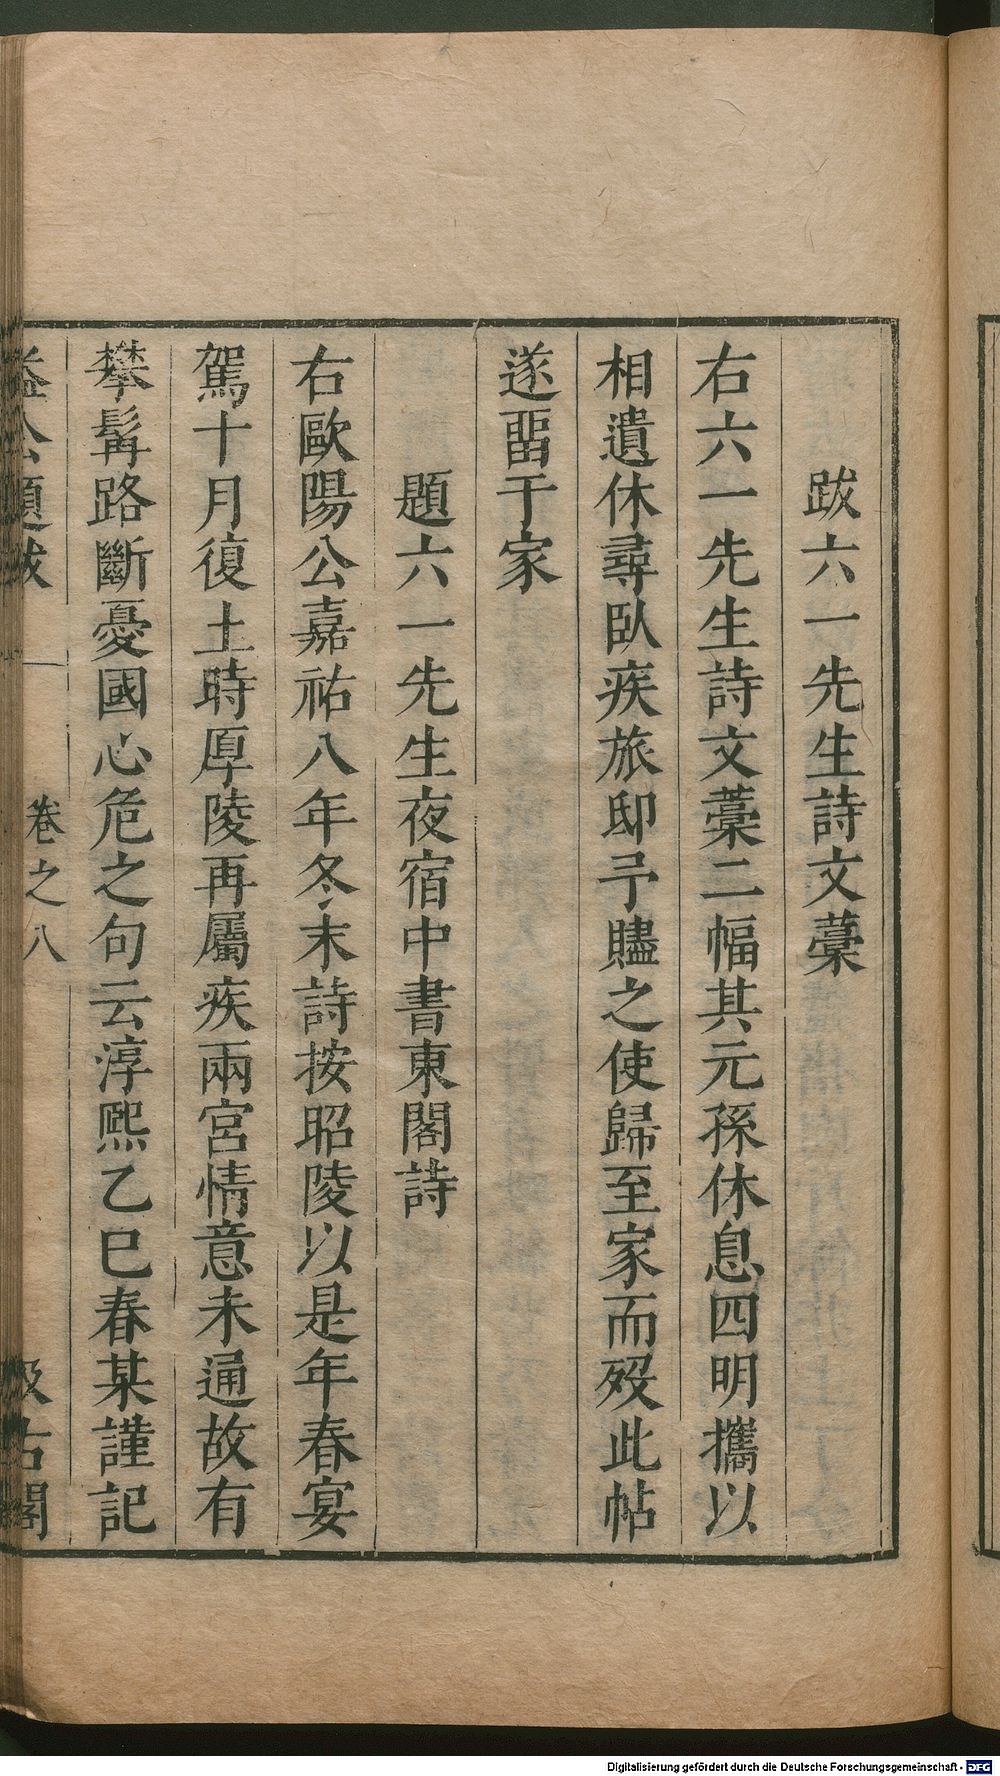 跋六一先生詩文藁
右六一先生詩文藁二幅其元孫休息四明攜以
相遺休尋臥疾旅邸予贐之使歸至家而歿此帖
遂畱于家
題六一先生夜宿中書東閣詩
右歐陽公嘉祐八年冬末詩按昭陵以是年春宴
駕十月復土時厚陵再屬疾兩宮情意未通故有
攀髯路斷憂國心危之句云淳熙乙巳春某謹記
益公題跋 卷之八 汲古閣
Digitalisierung gefördert durch die Deutsche Forschungsgemeinschaft - DFG